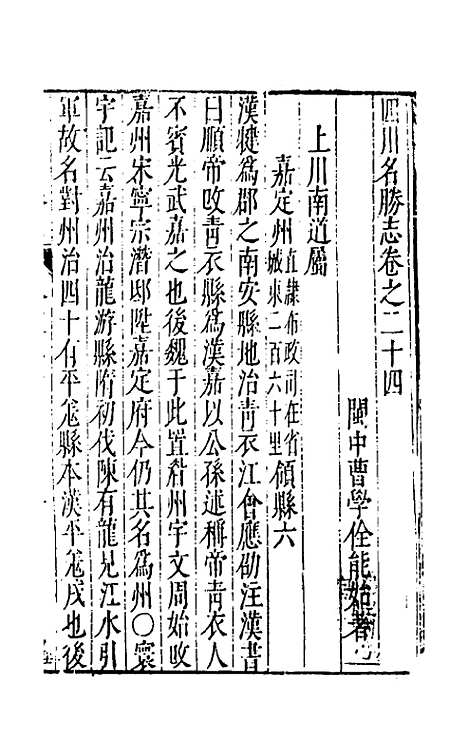 四川名勝志卷之二十四
閩中曹學佺能始著
上川南道屬
嘉定州直隸布政司在省城東二百六十里領縣六
漢犍爲郡之南安縣地治靑衣江會應劭注漢書
曰順帝改靑衣縣爲漢嘉以公孫述稱帝靑衣人
不賓光武嘉之也後魏于此置眉州宇文周始改
嘉州宋寧宗潛邸陞嘉定府今仍其名爲州〇寰
宇記云嘉州治龍游縣隋初伐陳有龍見江水引
軍故名對州治四十有平羌縣本漢平羌戍也後